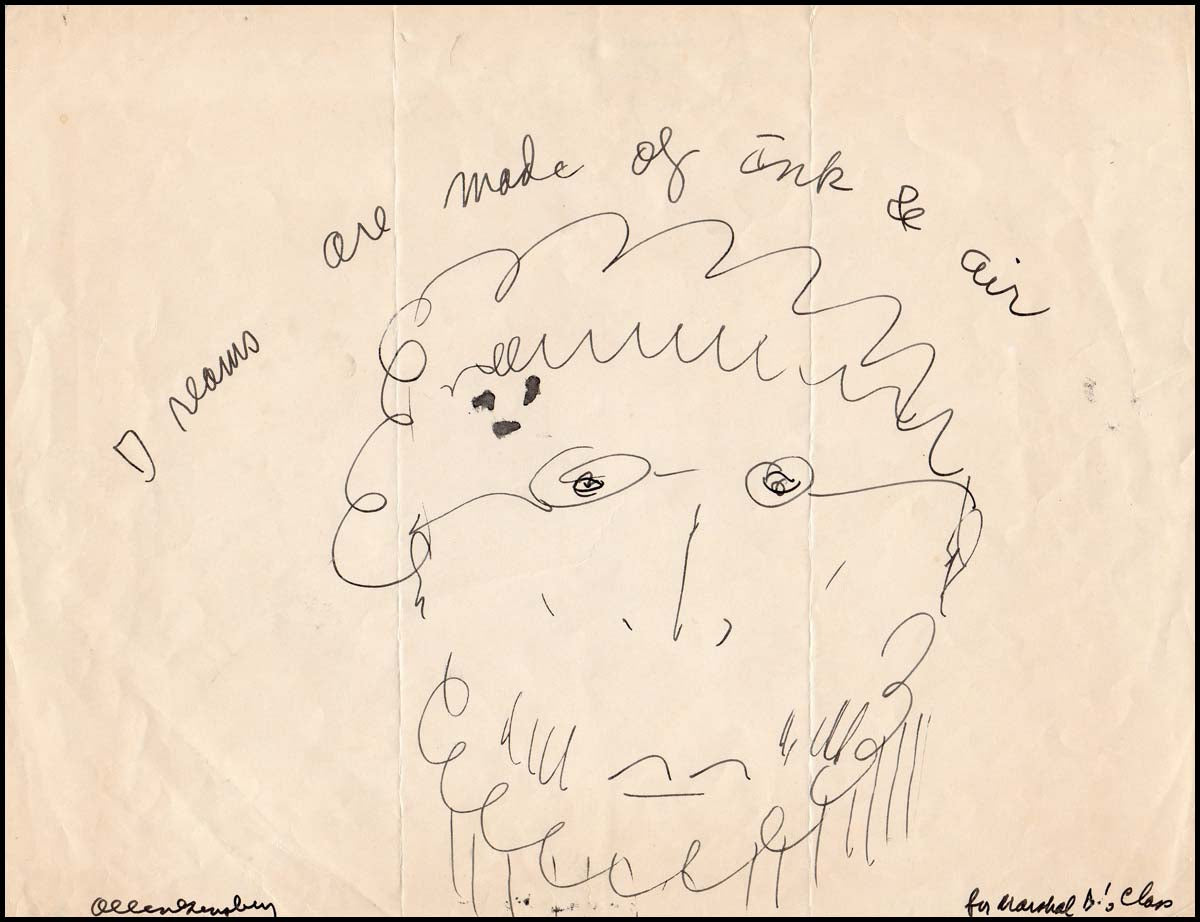 Dreams are made of ink & air
Allen Ginsberg
for Marshal B.'s Class